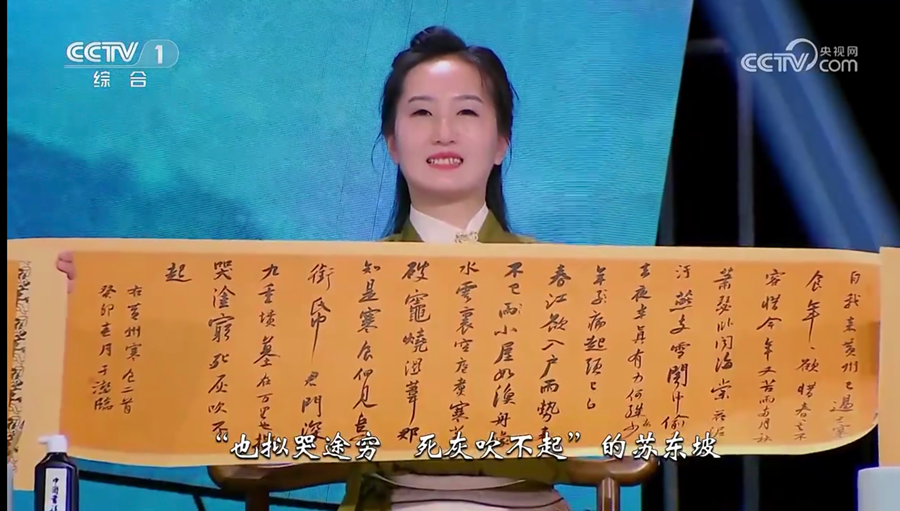 CCTV 1
综合
央视网
CCTV com
自我来黄州已過三寒
食年〻欲惜春去不
容惜今年又苦雨兩月秋
蕭瑟卧聞海棠花泥
汙燕支雪闇中偷
去夜半真有力何殊少
年病起頭已白
春江欲入户雨勢來
不已雨小屋如漁舟
水雲裏空庖煮寒菜
破竈燒濕葦那
知是寒食但見烏
銜帋君門深
九重墳墓在万里也擬
哭塗窮死灰吹不
起
右黄州寒食二首
癸卯春月于臨
“也拟哭途穷 死灰吹不起”的苏东坡
中国書